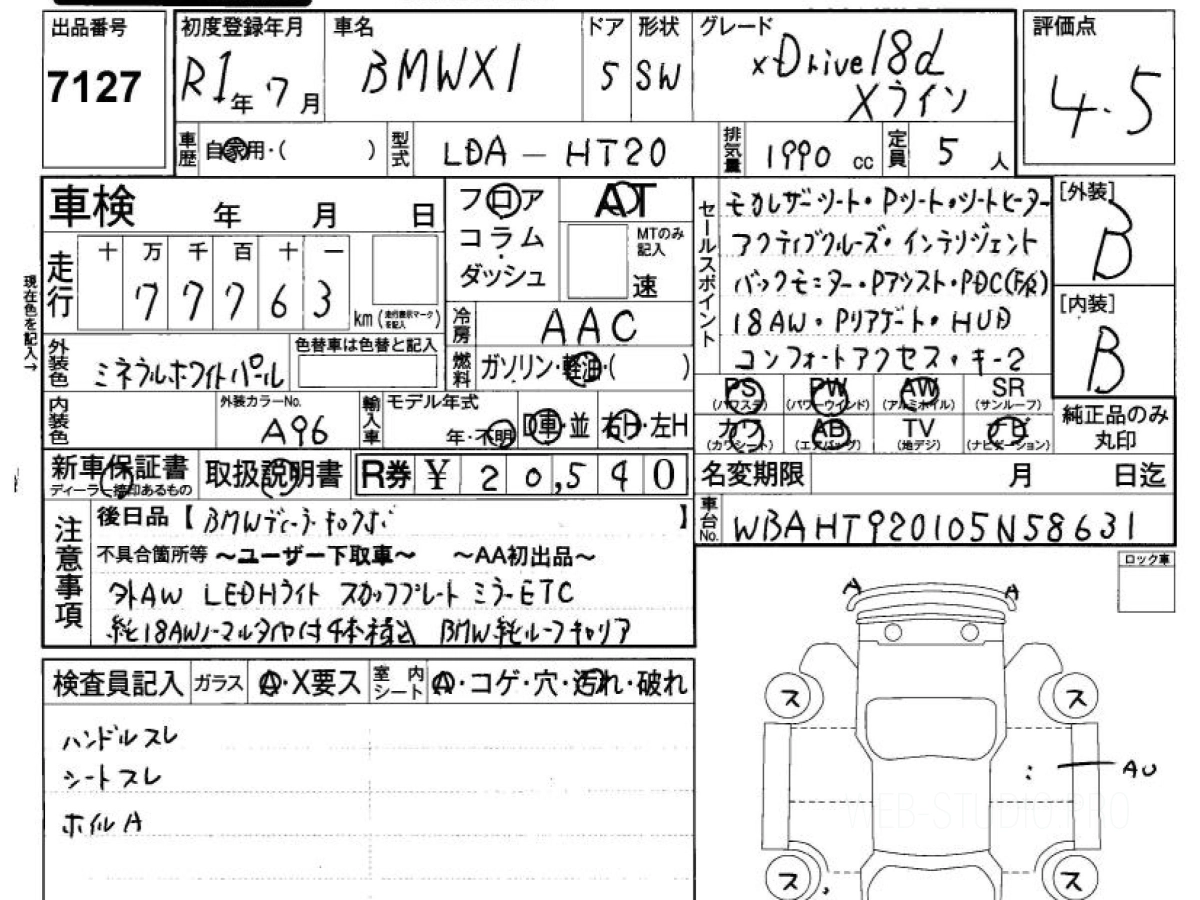 出品番号
7127
初度登録年月
R1年 7月
車名
BMWX1
ドア
5
形状
SW
グレード
xDrive18d
Xライン
評価点
4.5
車歴
自家用・( )
型式
LDA-HT20
排気量
1990 cc
定員
5人
車検 年 月 日
走行
十 万 千 百 十 一
7 7 7 6 3
km (走行無表示マークを記入)
現在色を記入→
フロア
コラム
ダッシュ
AT
MTのみ記入
速
冷房
AAC
燃料
ガソリン・軽油・( )
外装色
ミネラルホワイトパール
色替車は色替と記入
内装色
外装カラーNo.
A96
輸入車
モデル年式
年・不明
D車・並
右H・左H
セールスポイント
モカレザーシート・Pシート・シートヒーター
アクティブクルーズ・インテリジェント
バックモニター・Pアシスト・PDC(F/R)
18AW・Pリアゲート・HUD
コンフォートアクセス・キー2
[外装]
B
[内装]
B
PS
(パワステ)
PW
(パワーウインド)
AW
(アルミホイル)
SR
(サンルーフ)
カワ
(カワシート)
AB
(エアバッグ)
TV
(地デジ)
ナビ
(ナビゲーション)
純正品のみ
丸印
新車保証書
ディーラー捺印あるもの
取扱説明書
R券 ¥ 20,540
名変期限 月 日迄
車台No.
WBAHT920105N58631
注意事項
後日品【BMWディーラーキロクボ】
不具合箇所等 ～ユーザー下取車～ ～AA初出品～
外AW LEDHライト スカッフプレート ミラーETC
純18AWノーマルタイヤ付4本積込 BMW純ルーフキャリア
ロック車
検査員記入
ガラス
A・X要ス
室内シート
A・コゲ・穴・汚れ・破れ
ハンドルスレ
シートスレ
ホイルA
A
A
ス
ス
AU
ス
ス
WEB-STUDIO.PRO